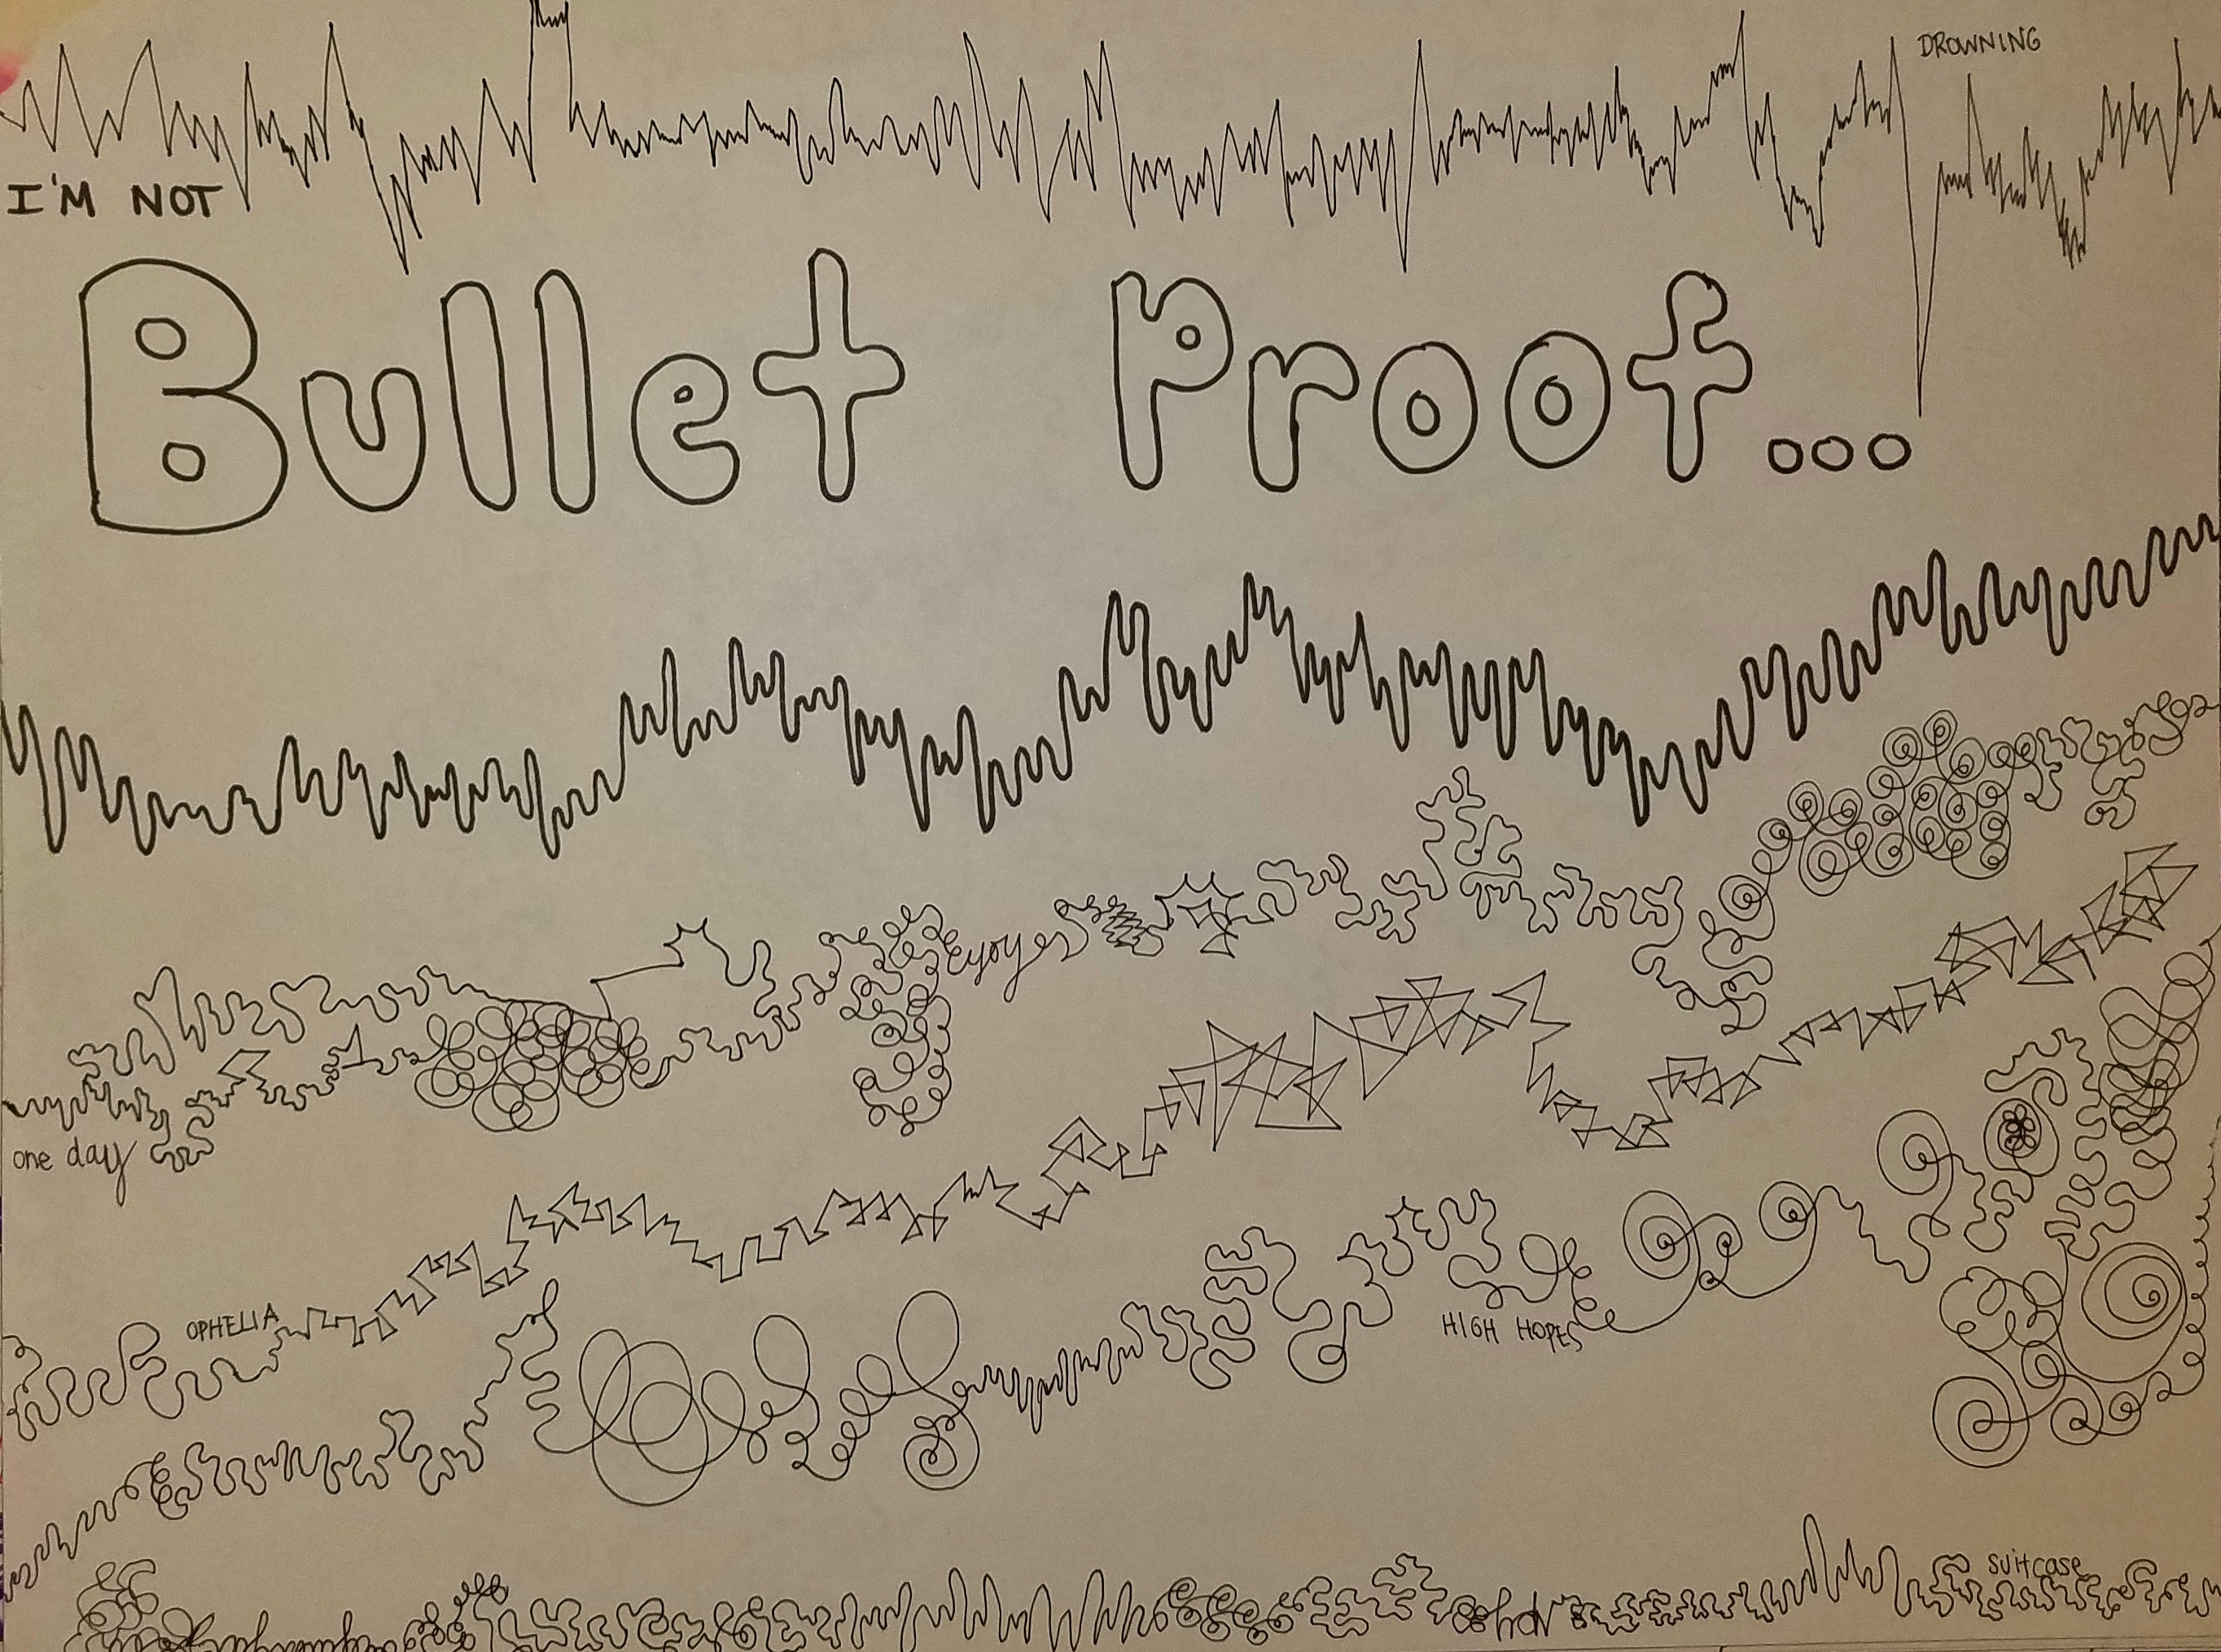 DROWNING
I'M NOT
Bullet Proof...
one day
OPHELIA
HIGH HOPES
suitcase